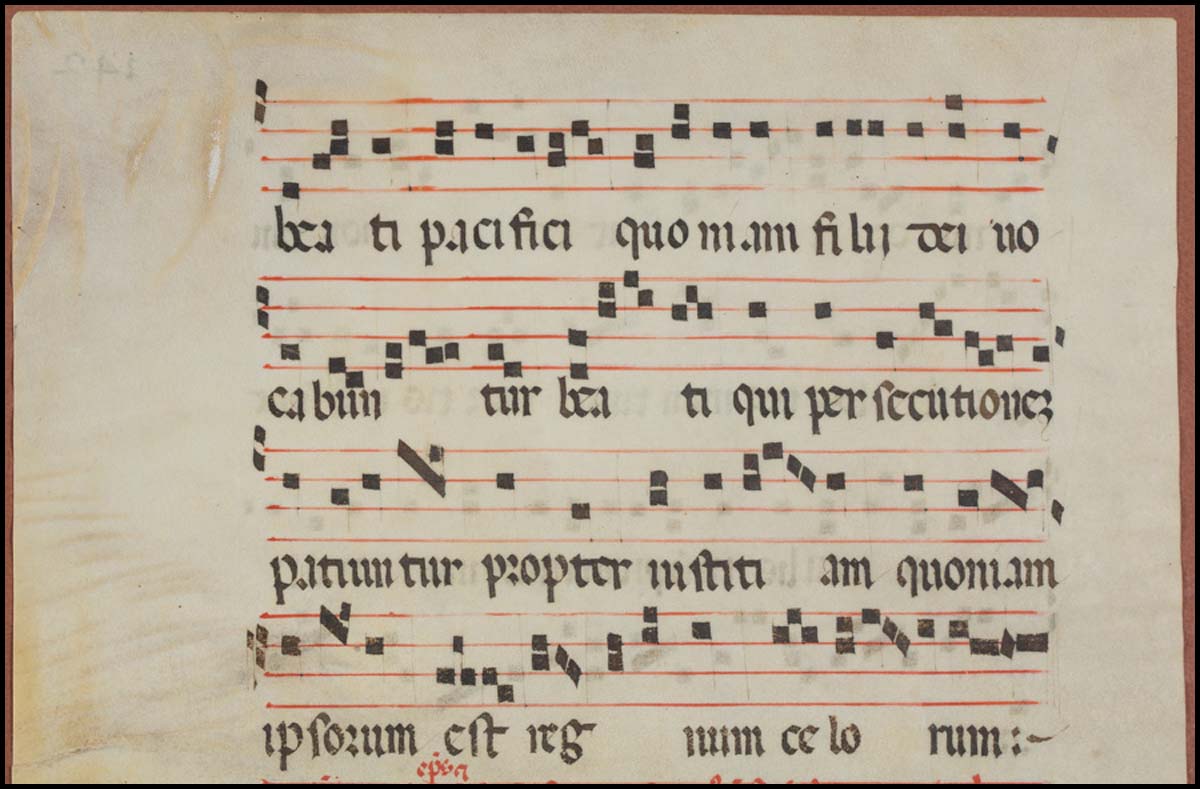 bea ti pacifici quoniam filij dei uo
cabun tur bea ti qui persecutionez
patiuntur propter iustiti am quoniam
ipsorum est reg num ce lo rum :-